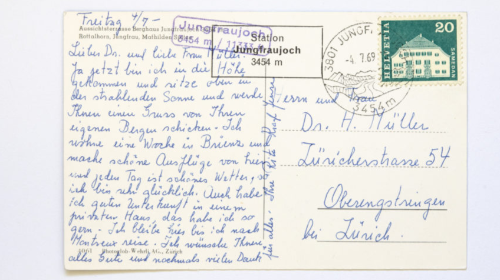 Freitag 4/7 -
Aussichtsterrasse Berghaus Jungfraujoch
Rottalhorn, Mathilden
Jungfraujoch
3454 m / 11333
Station
Jungfraujoch
3454 m
3801 JUNGF
- 4. 7. 69
3454 m
HELVETIA
20
SAMEDAN
Liebe Dr. und liebe Frau Müller.
Ja jetzt bin ich in die Höhe
gekommen und sitze oben an
der strahlenden Sonne und werde
Ihnen einen Gruss von Ihren
eigenen Bergen schicken - Ich
wohne eine Woche in Brienz und
mache schöne Ausflüge von hier
und jeden Tag ist schönes Wetter, so
ich bin sehr glücklich. Auch habe
ich guten Unterkunft in einem
privaten Haus, das habe ich so
gern - Ich bleibe hier bis ich nach
Montreux reise. Ich wünsche Ihnen
alles Gute und nochmals vielen Dank
für alles - Ihre
Herrn und Frau
Dr. H. Müller
Züricherstrasse 54
Oberengstringen
bei Zürich.
Photoglob-Wehrli AG., Zürich